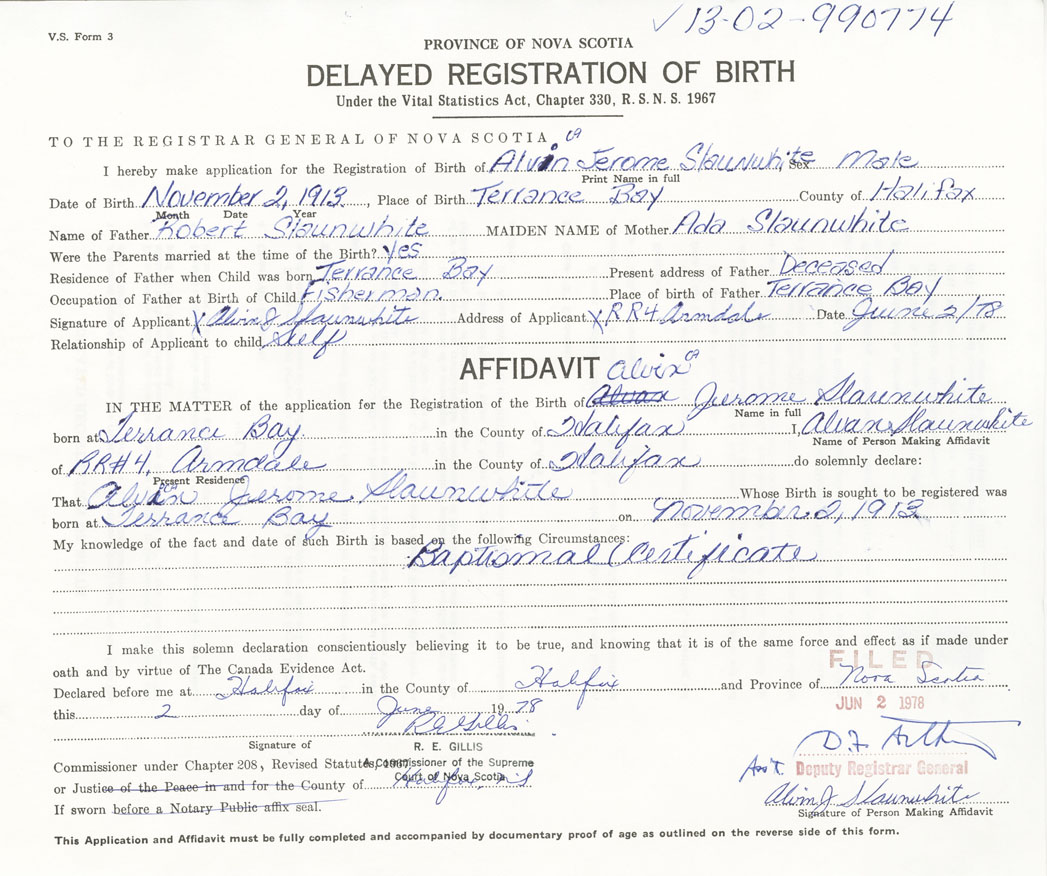 V.S. Form 3
✓13-02-990774
PROVINCE OF NOVA SCOTIA
DELAYED REGISTRATION OF BIRTH
Under the Vital Statistics Act, Chapter 330, R. S. N. S. 1967
TO THE REGISTRAR GENERAL OF NOVA SCOTIA
I hereby make application for the Registration of Birth of Alvin Jerome Slaunwhite Sex Male
Print Name in full
Date of Birth November 2, 1913, Place of Birth Terrance Bay County of Halifax
Month Date Year
Name of Father Robert Slaunwhite MAIDEN NAME of Mother Ada Slaunwhite
Were the Parents married at the time of the Birth? Yes
Residence of Father when Child was born Terrance Bay Present address of Father Deceased
Occupation of Father at Birth of Child Fisherman. Place of birth of Father Terrance Bay
Signature of Applicant X Alvin J Slaunwhite Address of Applicant X RR4 Armdale Date June 2/78
Relationship of Applicant to child Self
AFFIDAVIT Alvin
IN THE MATTER of the application for the Registration of the Birth of Alvan Jerome Slaunwhite
Name in full
born at Terrance Bay in the County of Halifax I, Alvan Slaunwhite
Name of Person Making Affidavit
of RR#4, Armdale in the County of Halifax do solemnly declare:
Present Residence
That Alvin Jerome Slaunwhite Whose Birth is sought to be registered was
born at Terrance Bay on November 2, 1913
My knowledge of the fact and date of such Birth is based on the following Circumstances:
Baptismal Certificate
I make this solemn declaration conscientiously believing it to be true, and knowing that it is of the same force and effect as if made under
oath and by virtue of The Canada Evidence Act.
FILED
Declared before me at Halifax in the County of Halifax and Province of Nova Scotia
JUN 2 1978
this 2 day of June 1978
R E Gillis
Signature of R. E. GILLIS
Commissioner under Chapter 208, Revised Statutes, 1967
A Commissioner of the Supreme
Court of Nova Scotia
or Justice of the Peace in and for the County of Halifax
Ass't. Deputy Registrar General
If sworn before a Notary Public affix seal.
Alvin J Slaunwhite
Signature of Person Making Affidavit
This Application and Affidavit must be fully completed and accompanied by documentary proof of age as outlined on the reverse side of this form.